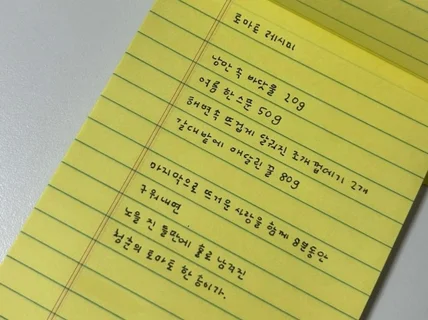 토마토 레시피
낭만 속 바닷물 20g
여름 한 스푼 50g
해변속 뜨겁게 달궈진 조개껍데기 2개
갈대밭에 매달린 꿀 80g
마지막으로 뜨거운 사랑을 함께 8분동안
구워내면
노을 진 들판에 홀로 남겨진
청춘의 토마토 한 송이가.